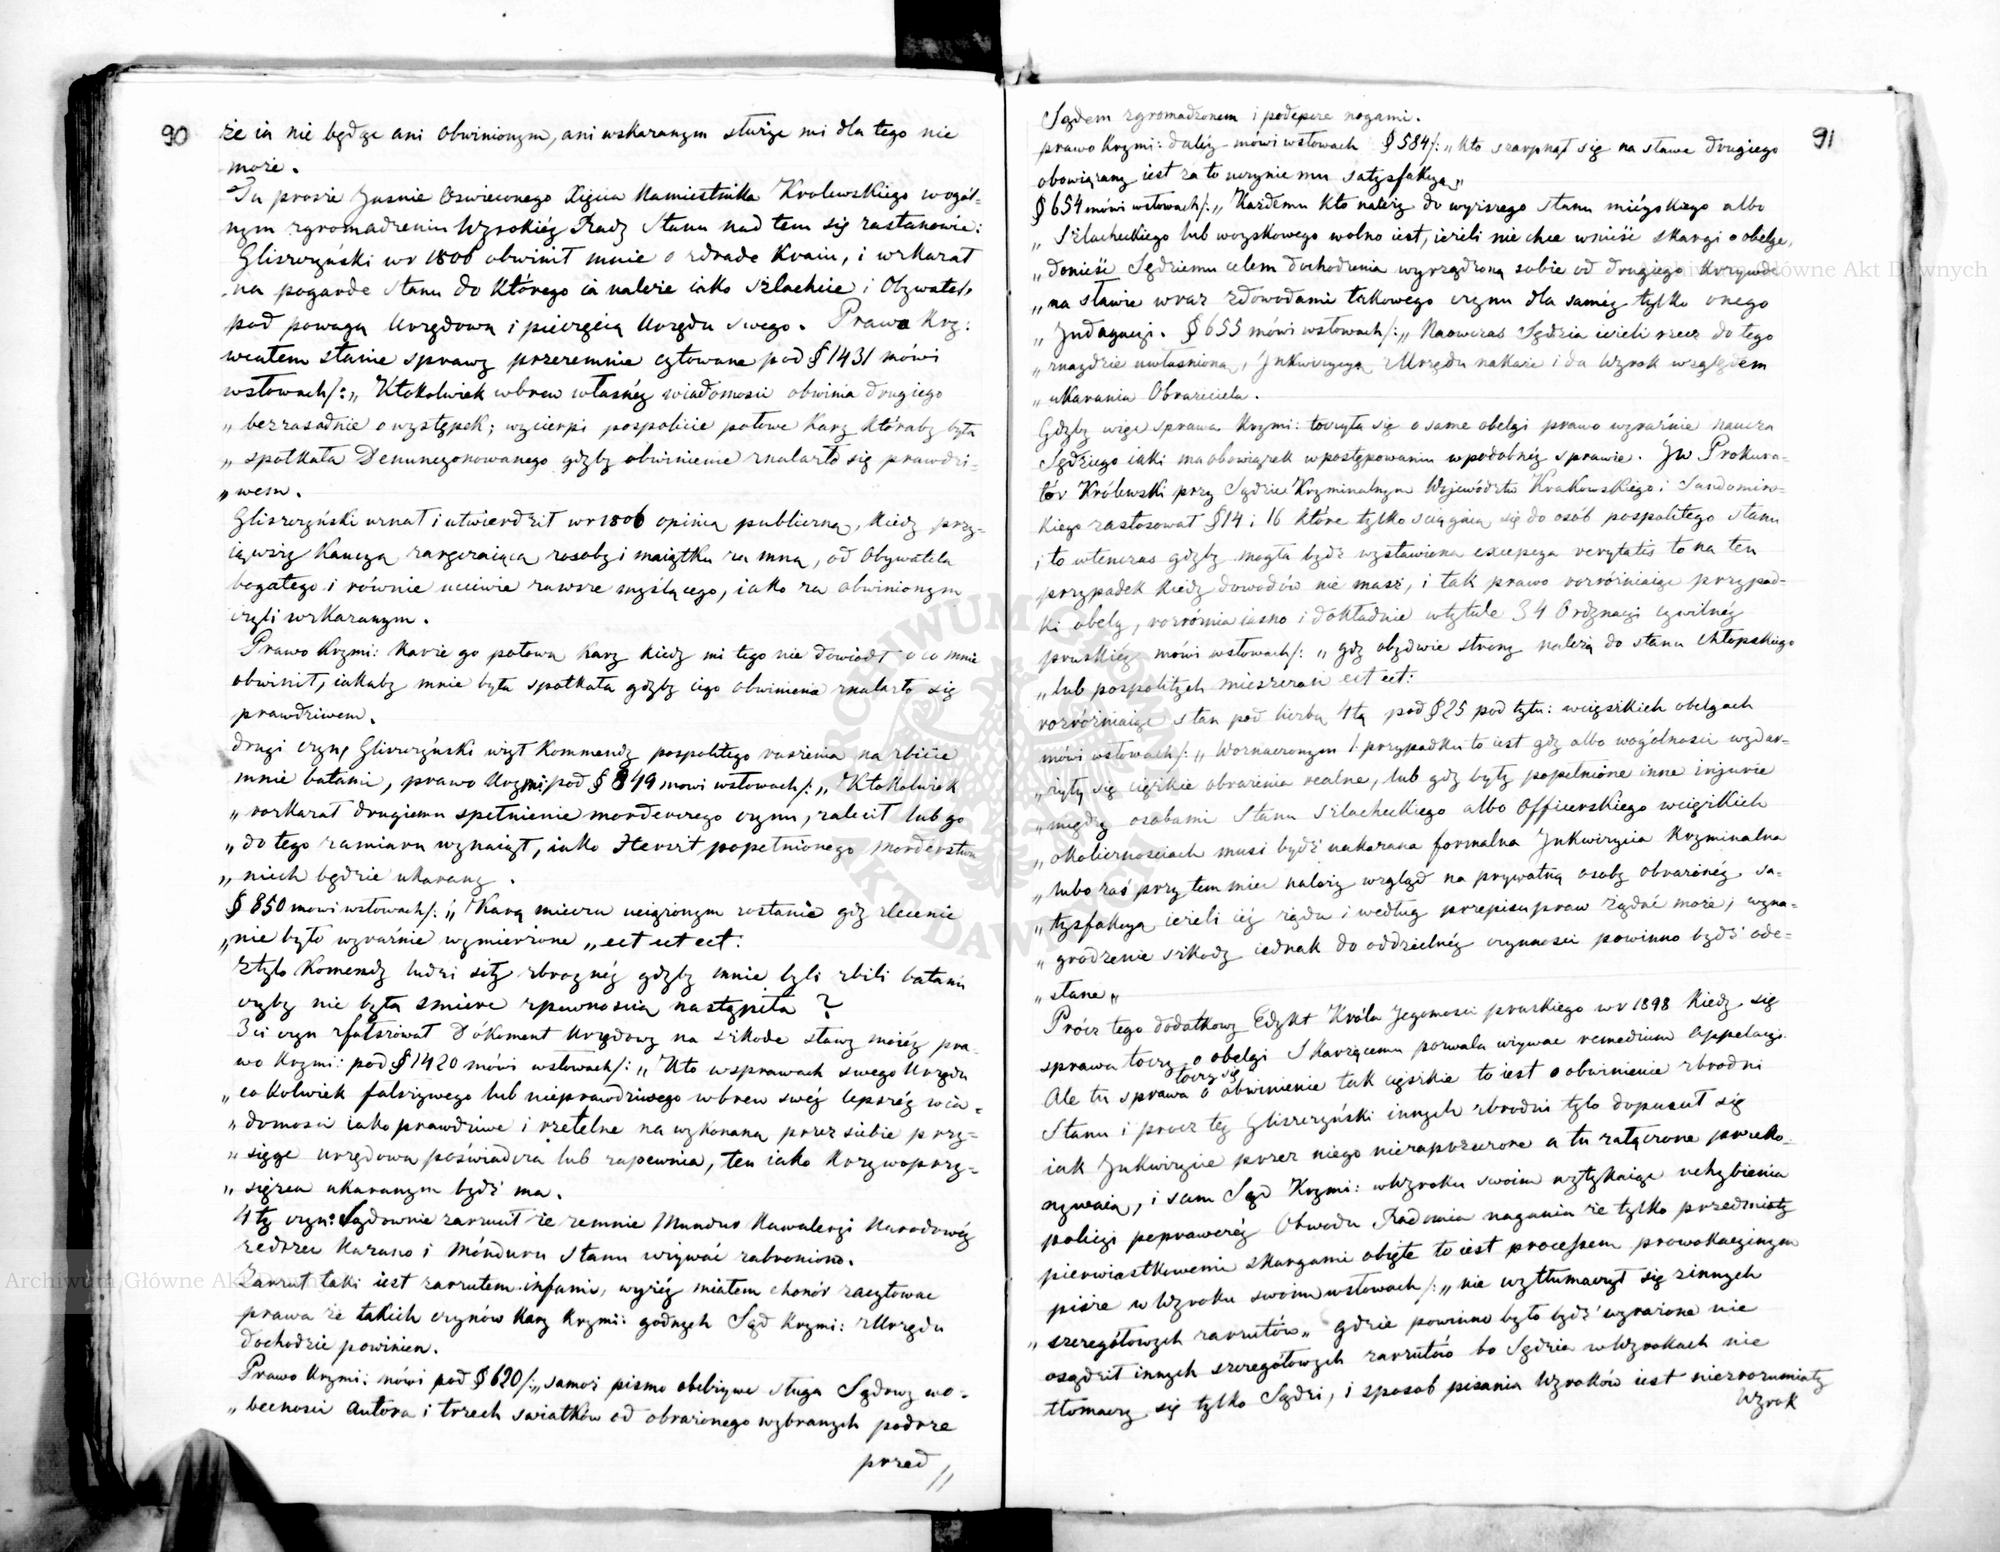 90
że ia nie będąc ani obwinionym, ani wskazanym służyć mi dla tego nie
może.
Tu proszę Jasnie Oswieconego Xięcia Namiestnika Krolewskiego w ogól-
nym zgromadzeniu Wysokiéy Rady Stanu nad tem się zastanowić:
Gliszczyński w r 1806 obwinił mnie o zdradę Kraiu, i wskazał
na pogardę Stanu do którego ia należę iako szlachcic i Obywatel,
pod powagą Urzędową i pieczęcią Urzędu swego. Prawo Krym:
w całem stanie sprawy przezemnie cytowane pod § 1431 mówi
w słowach/: „ Ktokolwiek wbrew własnéy wiadomosci obwinia drugiego
„ bezzasadnie o występek; wycierpi pospolicie połowę Kary któraby była
„ spotkała Denuncyonowanego gdyby obwinienie znalazło się prawdzi-
„ wem.
Gliszczyński uznał i utwierdził w r 1806 opinią publiczną, kiedy przy-
iąwszy Kaucyą zaręczaiącą z osoby i maiątku za mną, od Obywatela
bogatego i równie uczciwie zawsze myślącego, iako za obwinionym
czyli wskazanym.
Prawo Krymi: Karze go połową Kary kiedy mi tego nie dowiódł o co mnie
obwinił, iakaby mnie była spotkała gdyby iego obwinienie znalazło się
prawdziwem.
drugi czyn, Gliszczyński użył Kommendy pospolitego ruszenia na zbicie
mnie batami, prawo Krymi: pod § 849 mowi w słowach/: „ Ktokolwiek
„ rozkazał drugiemu spełnienie morderczego czynu, zalecił lub go
„ do tego zamiaru wynaiął, iako Herszt popełnionego morderstwa
„ niech będzie ukarany.
§ 850 mowi w słowach/: „ Karą miecza uciążonym zostanie gdy zlecenie
„ nie było wyraźnie wymierzone „ ect ect ect:
Z tylo Komendy ludzi siły zbroynéy gdyby mnie byli zbili batami
czyby nie była smierć z pewnoscią nastąpiła?
3ci czyn sfałszował Dokument Urzędowy na szkodę sławy moiéy pra-
wo Krymi: pod § 1420 mówi w słowach/: „ Kto w sprawach swego Urzędu
„ cokolwiek fałszywego lub nieprawdziwego wbrew swéy lepszéy wia-
„ domosci iako prawdziwe i rzetelne na wykonaną przez siebie przy-
„ sięgę urzędową poświadcza lub zapewnia, ten iako Krzywoprzy-
„ siężca ukaranym bydź ma.
4ty czyn: Sądownie zarzucił że zemnie Mundur Kawaleryi Narodowéy
zedrzeć Kazano i Munduru Stanu używać zabroniono.
Zarzut taki iest zarzutem infamii, wyżéy miałem chonór zacytować
prawa że takich czynów Kary Krymi: godnych Sąd Krymi: z Urzędu
dochodzić powinien.
Prawo Krymi: mówi pod § 620/: „ samoż pismo obelżywe sługa Sądowy w o-
„ becnosci Autora i trzech swiatków od obrażonego wybranych podrze
przed //
91
Sądem zgromadzonem i podepcze nogami.
prawo Krymi: daléy mówi w słowach § 584/: „ Kto szarpnął się na sławę drugiego
obowiązany iest za to uczynić mu satysfakcyą „
§ 654 mówi w słowach/: „ Każdemu kto należy do wyższego stanu mieyskiego albo
„ Szlacheckiego lub woyskowego wolno iest, ieżeli nie chce wnieść skargi o obelgę,
„ donieść Sędziemu celem dochodzenia wyrządzoną sobie od drugiego Krzywdę
„ na sławie wraz z dowodami takowego czynu dla saméy tylko onego
„ Indagacyi. § 655 mówi w słowach/: „ Naowczas Sędzia ieżeli rzecz do tego
„ znaydzie uwłasniona, Inkwizycyą z Urzędu nakaże i da Wyrok względem
„ ukarania Obraziciela.
Gdyby więc sprawa Krymi: toczyła się o same obelgi prawo wyraźnie naucza
Sędziego iaki ma obowiązek w postępowaniu w podobnéy sprawie. JW Prokura-
tór Królewski przy Sądzie Kryminalnym Województw Krakowskiego i Sandomirs-
kiego zastosował § 14 i 16 które tylko sciągaią się do osób pospolitego stanu
i to wtenczas gdyby mogła bydź wystawiona excepcya verytatis to na ten
przypadek kiedy dowodów nie masz, i tak prawo rozróżniaiąc przypad-
ki obelg, rozróżnia iasno i dokładnie w tytule 34 Ordynacyi cywilnéy
pruskiéy mówi w słowach/: „ gdy obydwie strony należą do stanu chłopskiego
„ lub pospolitych mieszczan ect ect:
rozróżniaiąc stan pod liczbą 4tą pod § 25 pod tytu: w ciężkich obelgach
mówi w słowach/: „ W oznaczonym 1 przypadku to iest gdy albo w ogólnosci wydar-
„ zyły się ciężkie obrażenia realne, lub gdy były popełnione inne injurie
„ między osobami Stanu szlacheckiego albo Officerskiego w ciężkich
„ okolicznosciach musi bydź nakazana formalna Inkwizycia Kryminalna
„ lubo zaś przy tem mieć należy wzgląd na prywatną osoby obrażonéy sa-
„ tysfakcyą ieżeli iéy żąda i według przepisu praw żądać może, wyna-
„ grodzenie szkody iednak do oddzielnéy czynnosci powinno bydź ode-
„ słane „
Prócz tego dodatkowy Edykt Króla Jegomosci pruskiego w r 1898 kiedy się
sprawa toczy o obelgi Skarżącemu pozwala używać remedium appelacyi.
Ale tu sprawa toczy się o obwinienie tak ciężkie to iest o obwinienie zbrodni
Stanu i procz téy Gliszczyński innych zbrodni tylo dopuscił się
iak Inkwizycie przez niego niezaprzeczone a tu załączone przeko-
nywaią, i sam Sąd Krymi: w Wyroku swoim wytykaiąc uchybienia
policyi poprawczéy Obwodu Radomia nagania że tylko przedmioty
pierwiastkowemi skargami obięte to iest processem prowokacyinym
pisze w Wyroku swoim w słowach/: „ nie wytłumaczył się z innych
„ szczegółowych zarzutów „ gdzie powinno było bydź wyrażone nie
osądził innych szczegółowych zarzutów bo Sędzia w Wyrokach nie
tłomaczy się tylko Sądzi, i sposób pisania Wyroków iest niezrozumiały
Wyrok
Archiwum Główne Akt Dawnych
Archiwum Główne Akt Dawnych
ARCHIWUM GŁÓWNE AKT DAWNYCH